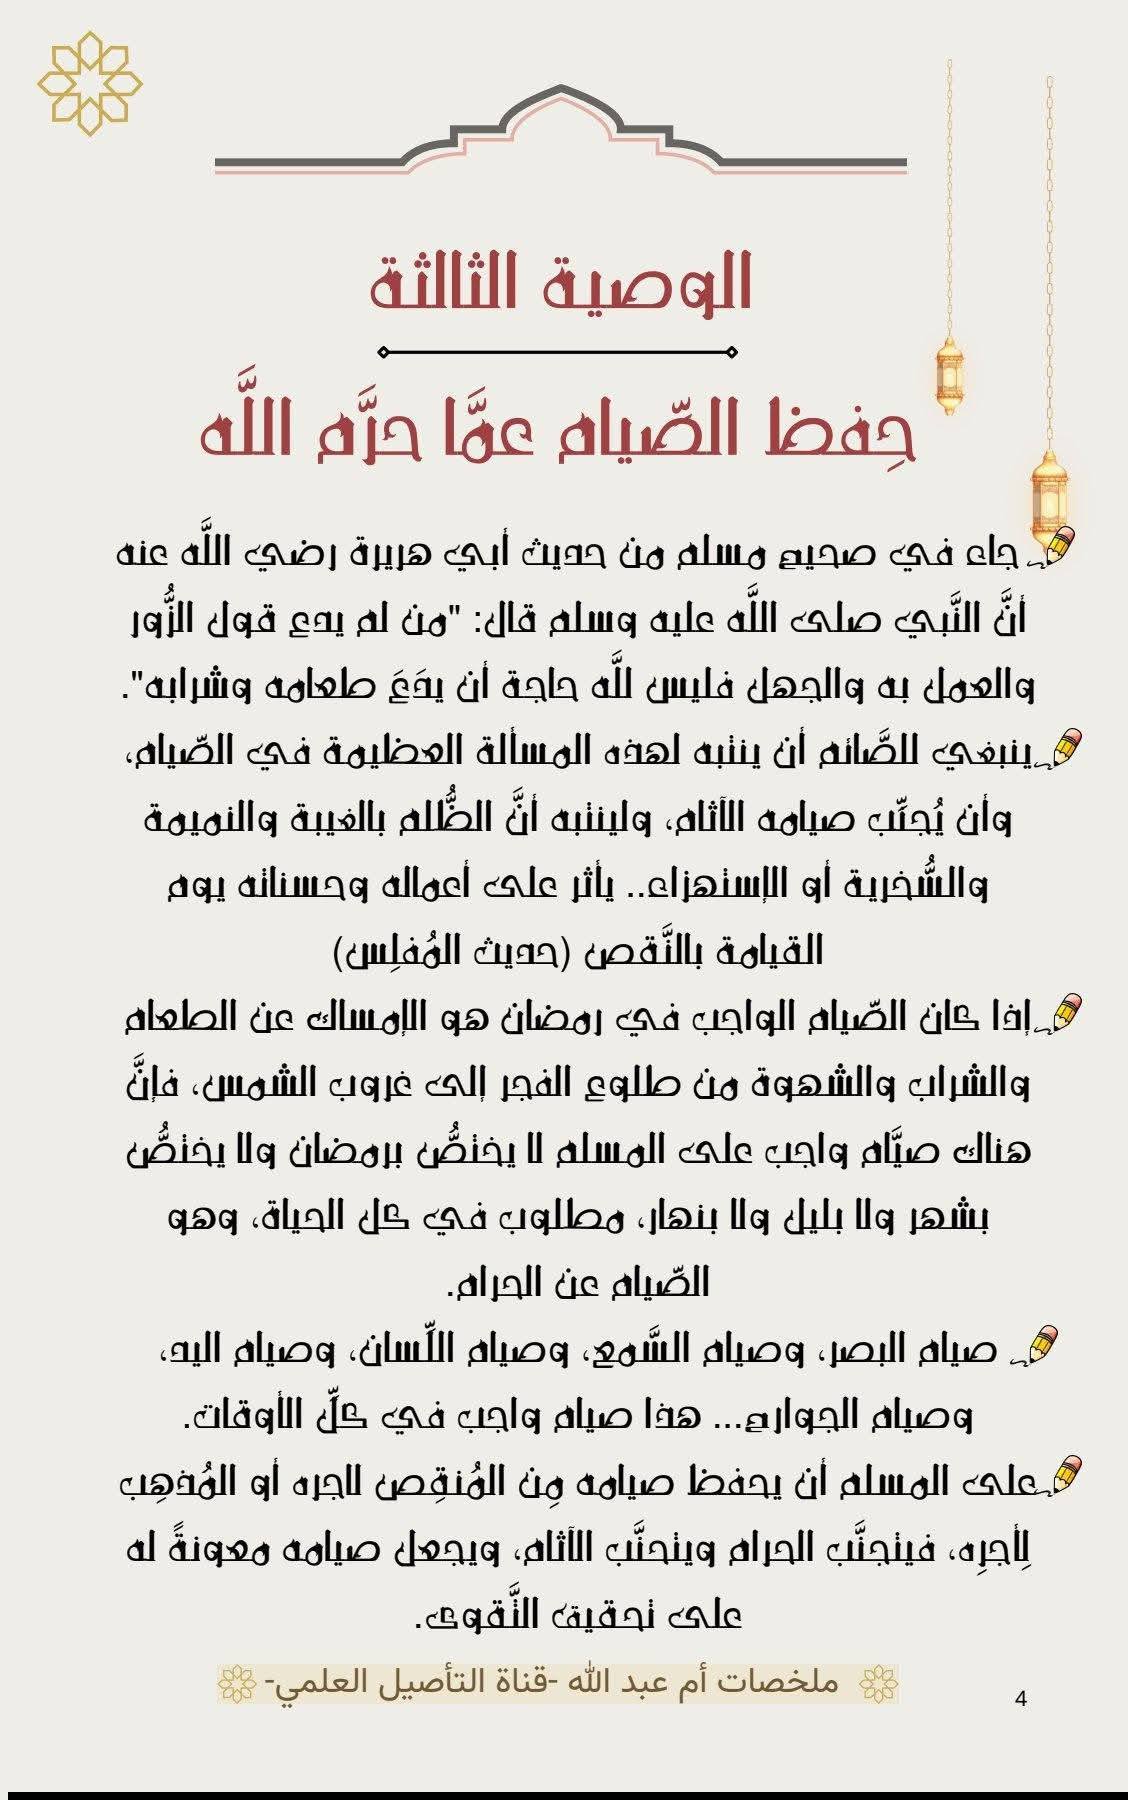 الوصية الثالثة
حِفظ الصّيام عمَّا حرَّم اللَّه
جاء في صحيح مسلم من حديث أبي هريرة رضي اللَّه عنه
أنَّ النَّبي صلى اللَّه عليه وسلم قال: "من لم يدع قول الزُّور
والعمل به والجهل فليس للَّه حاجة أن يدَعَ طعامه وشرابه".
ينبغي للصَّائم أن ينتبه لهذه المسألة العظيمة في الصّيام،
وأن يُجنِّب صيامه الآثام، ولينتبه أنَّ الظُّلم بالغيبة والنميمة
والسُّخرية أو الإستهزاء.. يأثر على أعماله وحسناته يوم
القيامة بالنَّقص (حديث المُفلِس)
إذا كان الصّيام الواجب في رمضان هو الإمساك عن الطعام
والشراب والشهوة من طلوع الفجر إلى غروب الشمس، فإنَّ
هناك صيَّام واجب على المسلم لا يختصُّ برمضان ولا يختصُّ
بشهر ولا بليل ولا بنهار، مطلوب في كل الحياة، وهو
الصّيام عن الحرام.
صيام البصر، وصيام السَّمع، وصيام اللّسان، وصيام اليد،
وصيام الجوارح... هذا صيام واجب في كلِّ الأوقات.
على المسلم أن يحفظ صيامه مِن المُنقِص لاجره أو المُذهِب
لِأجرِه، فيتجنَّب الحرام ويتجنَّب الآثام، ويجعل صيامه معونةً له
على تحقيق التَّقوى.
ملخصات أم عبد الله -قناة التأصيل العلمي-
4